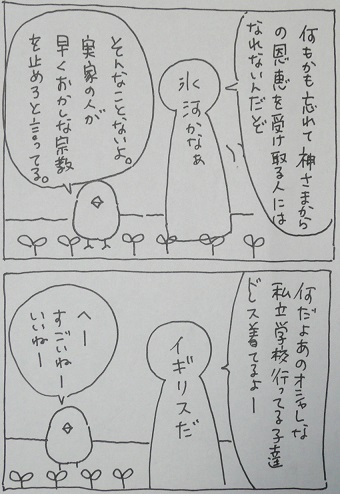 何もかも忘れて神さまから
の恩恵を受け取る人には
なれないんだど
氷河かなぁ
そんなことないよ。
実家の人が
早くおかしな宗教
を止めろと言ってる。
何だよあのオシャレな
私立学校行ってる子達
ドレス着てるよー
イギリスだ
へー
すごいねー
いいねー